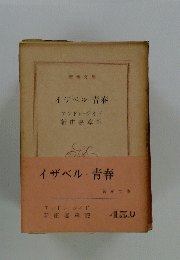 新潮文庫
イザベル・青春
アンドレ・ジイド
新庄嘉章訳
イザベル・青春
新潮文庫
アンドレ・ジイド
新庄嘉章訳